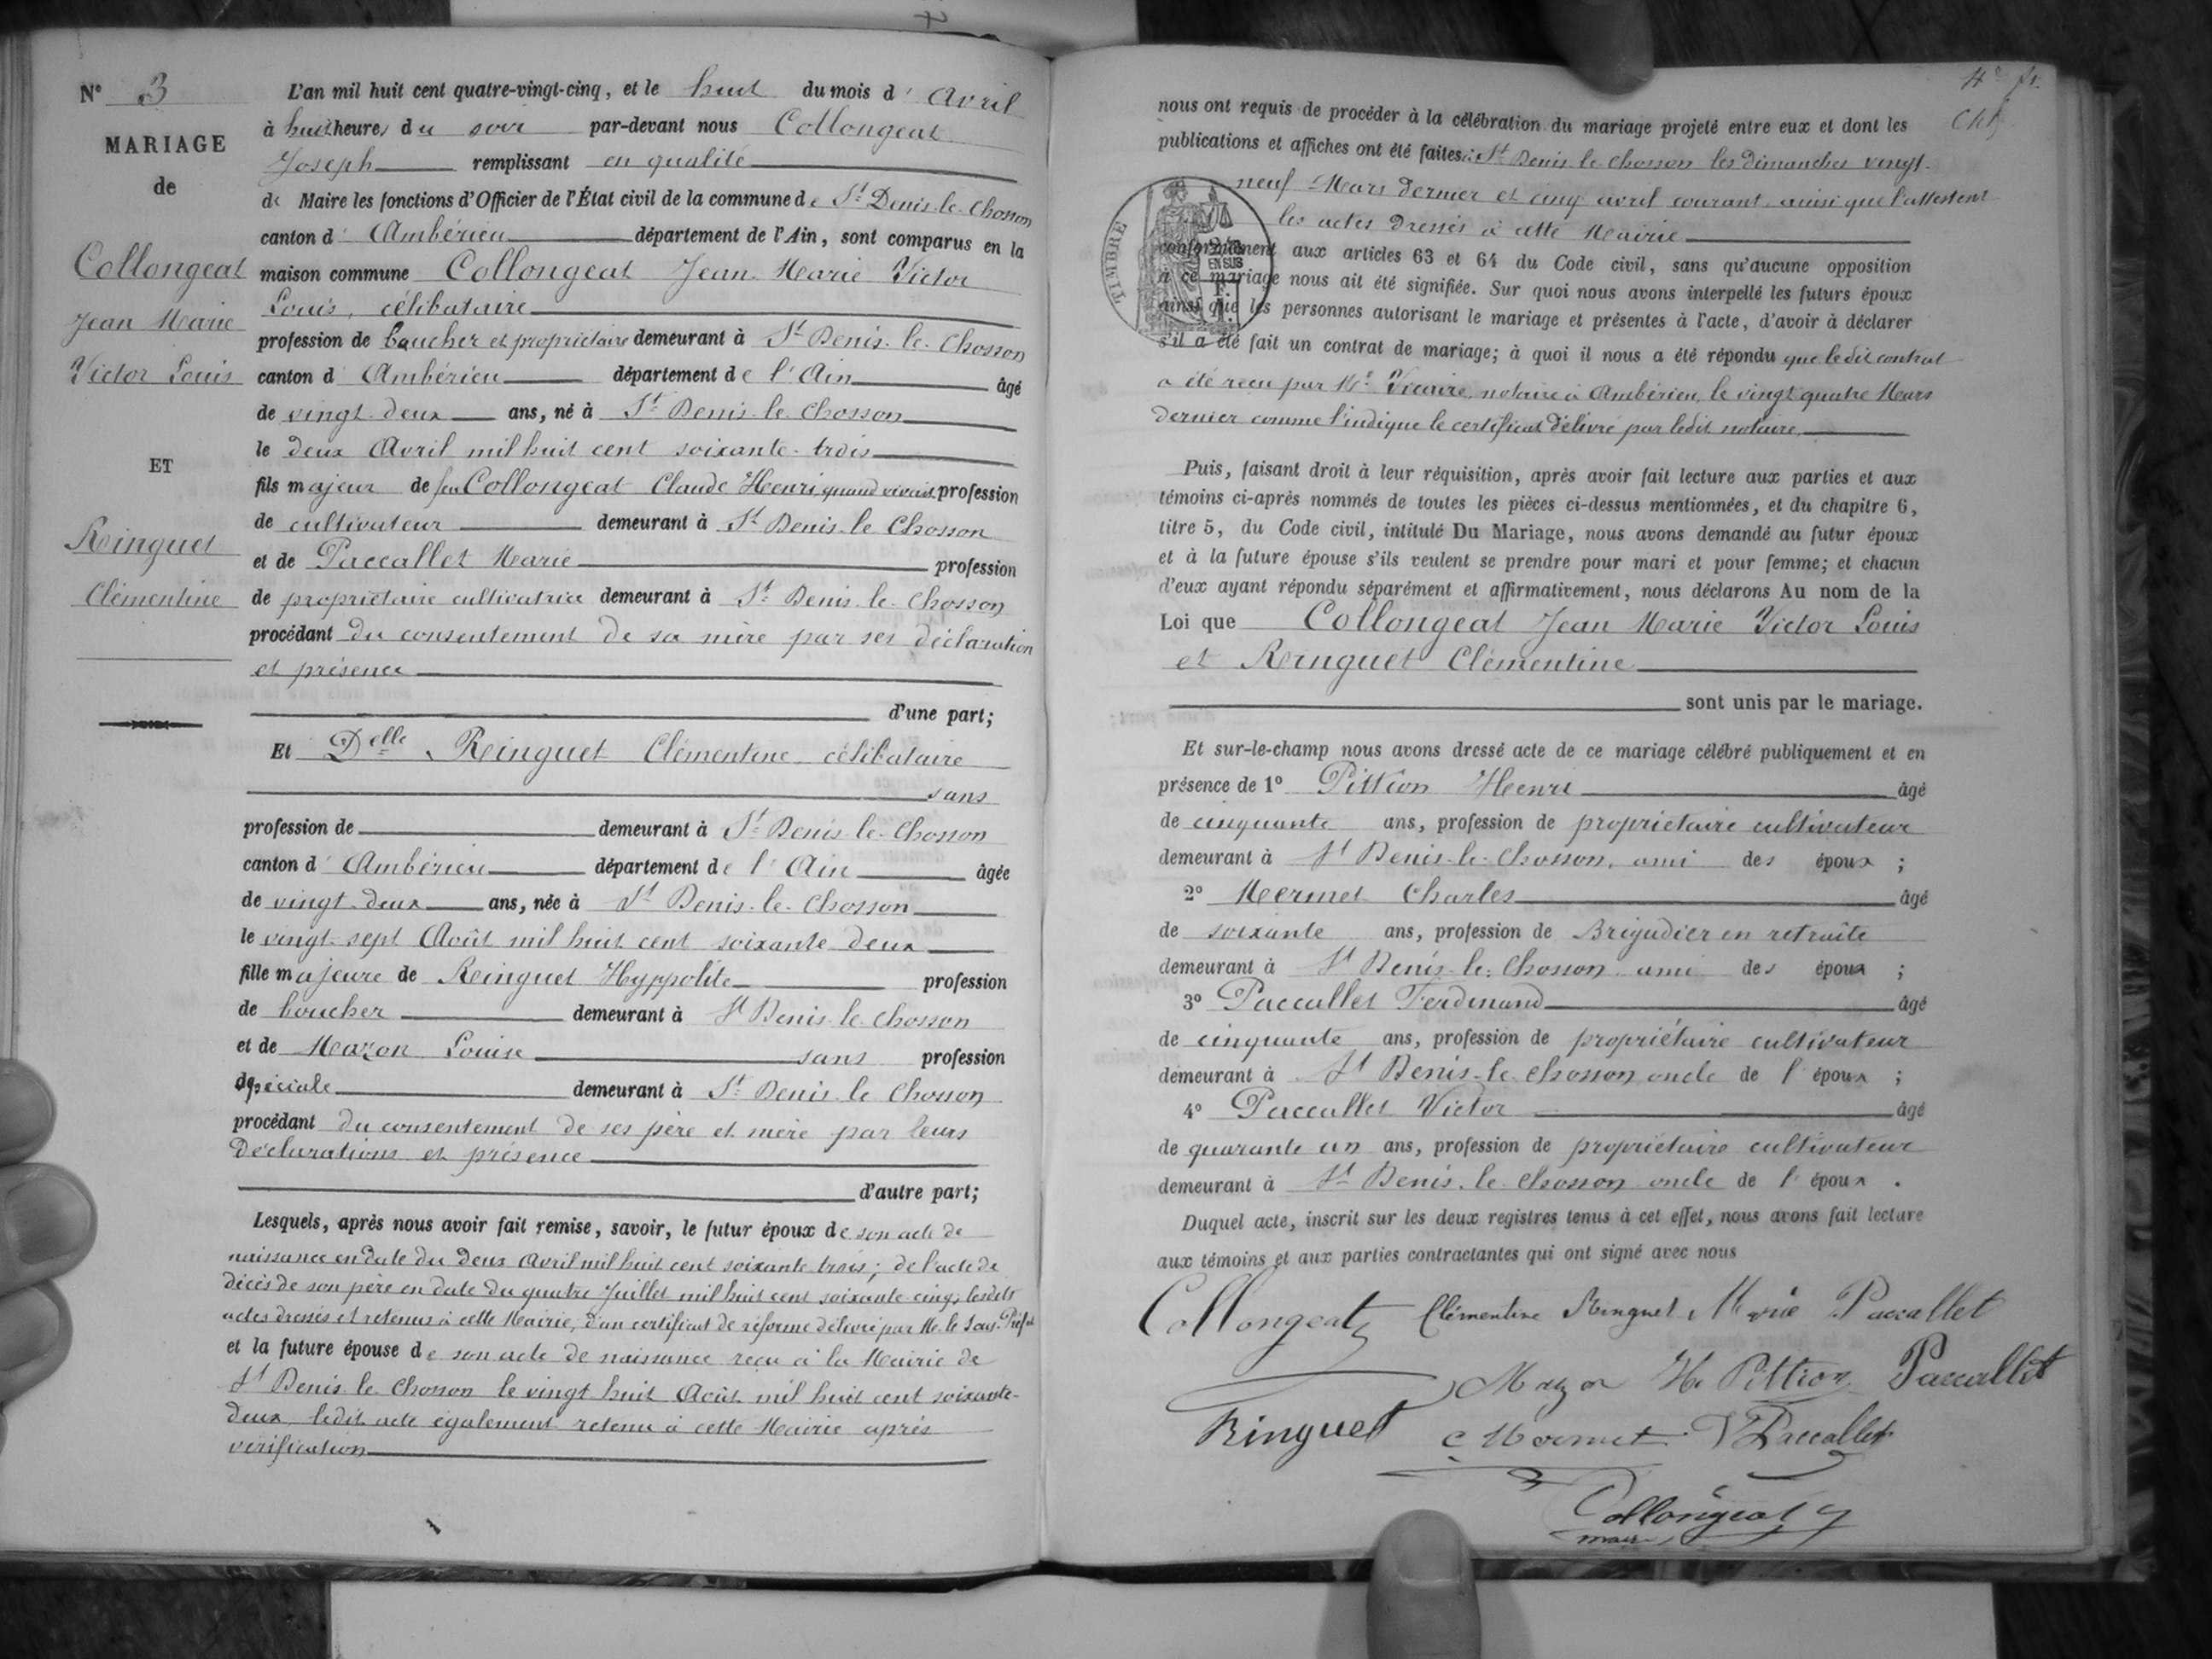 N° 3
MARIAGE
de
Collongeat
Jean Marie
Victor Louis
ET
Ringuet
Clémentine
L'an mil huit cent quatre-vingt-cinq, et le huit du mois d'Avril
à huit heures du soir par-devant nous Collongeat
Joseph remplissant en qualité
de Maire les fonctions d'Officier de l'État civil de la commune de St Denis-le-Chosson
canton d'Ambérieu département de l'Ain, sont comparus en la
maison commune Collongeat Jean Marie Victor
Louis, célibataire
profession de boucher et propriétaire demeurant à St Denis-le-Chosson
canton d'Ambérieu département de l'Ain âgé
de vingt-deux ans, né à St Denis-le-Chosson
le deux Avril mil huit cent soixante-trois
fils majeur de feu Collongeat Claude Henri quand vivait profession
de cultivateur demeurant à St Denis-le-Chosson
et de Paccallet Marie profession
de propriétaire cultivatrice demeurant à St Denis-le-Chosson
procédant du consentement de sa mère par ses déclaration
et présence
d'une part;
Et Delle Ringuet Clémentine célibataire
sans
profession de demeurant à St Denis-le-Chosson
canton d'Ambérieu département de l'Ain âgée
de vingt-deux ans, née à St Denis-le-Chosson
le vingt-sept Août mil huit cent soixante deux
fille majeure de Ringuet Hyppolite profession
de boucher demeurant à St Denis-le-Chosson
et de Mazon Louise sans profession
spéciale demeurant à St Denis-le-Chosson
procédant du consentement de ses père et mère par leurs
déclarations et présence
d'autre part;
Lesquels, après nous avoir fait remise, savoir, le futur époux de son acte de
naissance en date du deux Avril mil huit cent soixante trois; de l'acte de
décès de son père en date du quatre Juillet mil huit cent soixante-cinq, lesdits
actes dressés et retenus à cette Mairie, d'un certificat de réforme délivré par Mr. le Sous-Préfet
et la future épouse de son acte de naissance reçu à la Mairie de
St Denis-le-Chosson le vingt huit Août mil huit cent soixante-
deux, ledit acte également retenu à cette Mairie après
vérification
4e ft.
nous ont requis de procéder à la célébration du mariage projeté entre eux et dont les
publications et affiches ont été faites à St Denis-le-Chosson les dimanches vingt-
neuf Mars dernier et cinq avril courant ainsi que l'attestent
les actes dressés à cette Mairie
TIMBRE
EN SUS
conformément aux articles 63 et 64 du Code civil, sans qu'aucune opposition
à ce mariage nous ait été signifiée. Sur quoi nous avons interpellé les futurs époux
ainsi que les personnes autorisant le mariage et présentes à l'acte, d'avoir à déclarer
s'il a été fait un contrat de mariage; à quoi il nous a été répondu que ledit contrat
a été reçu par Me Vicaire, notaire à Ambérieu, le vingt quatre Mars
dernier comme l'indique le certificat délivré par ledit notaire.
Puis, faisant droit à leur réquisition, après avoir fait lecture aux parties et aux
témoins ci-après nommés de toutes les pièces ci-dessus mentionnées, et du chapitre 6,
titre 5, du Code civil, intitulé Du Mariage, nous avons demandé au futur époux
et à la future épouse s'ils veulent se prendre pour mari et pour femme; et chacun
d'eux ayant répondu séparément et affirmativement, nous déclarons Au nom de la
Loi que Collongeat Jean Marie Victor Louis
et Ringuet Clémentine
sont unis par le mariage.
Et sur-le-champ nous avons dressé acte de ce mariage célébré publiquement et en
présence de 1° Pittion Henri âgé
de cinquante ans, profession de propriétaire cultivateur
demeurant à St Denis-le-Chosson, ami des époux ;
2° Mermet Charles âgé
de soixante ans, profession de Brigadier en retraite
demeurant à St Denis-le-Chosson ami des époux ;
3° Paccallet Ferdinand âgé
de cinquante ans, profession de propriétaire cultivateur
demeurant à St Denis-le-Chosson oncle de l'époux ;
4° Paccallet Victor âgé
de quarante un ans, profession de propriétaire cultivateur
demeurant à St Denis-le-Chosson oncle de l'époux .
Duquel acte, inscrit sur les deux registres tenus à cet effet, nous avons fait lecture
aux témoins et aux parties contractantes qui ont signé avec nous
Collongeat Clémentine Ringuet Marie Paccallet
Mazon H. Pittion Paccallet
Ringuet C Mermet V Paccallet
Collongeat
maire